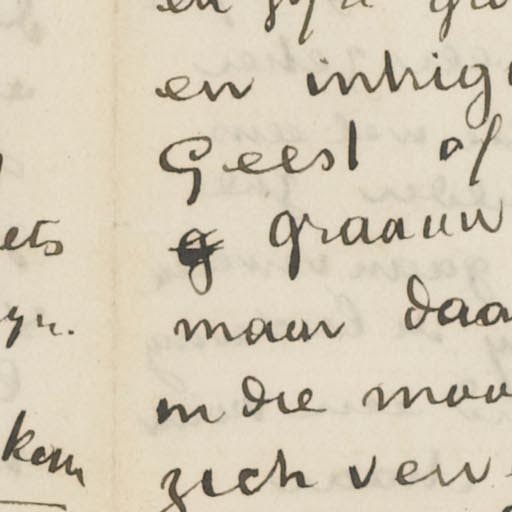 en intrig
Geest of
graauw
maar daa
in die moo
zich ver
ets
yr.
kom